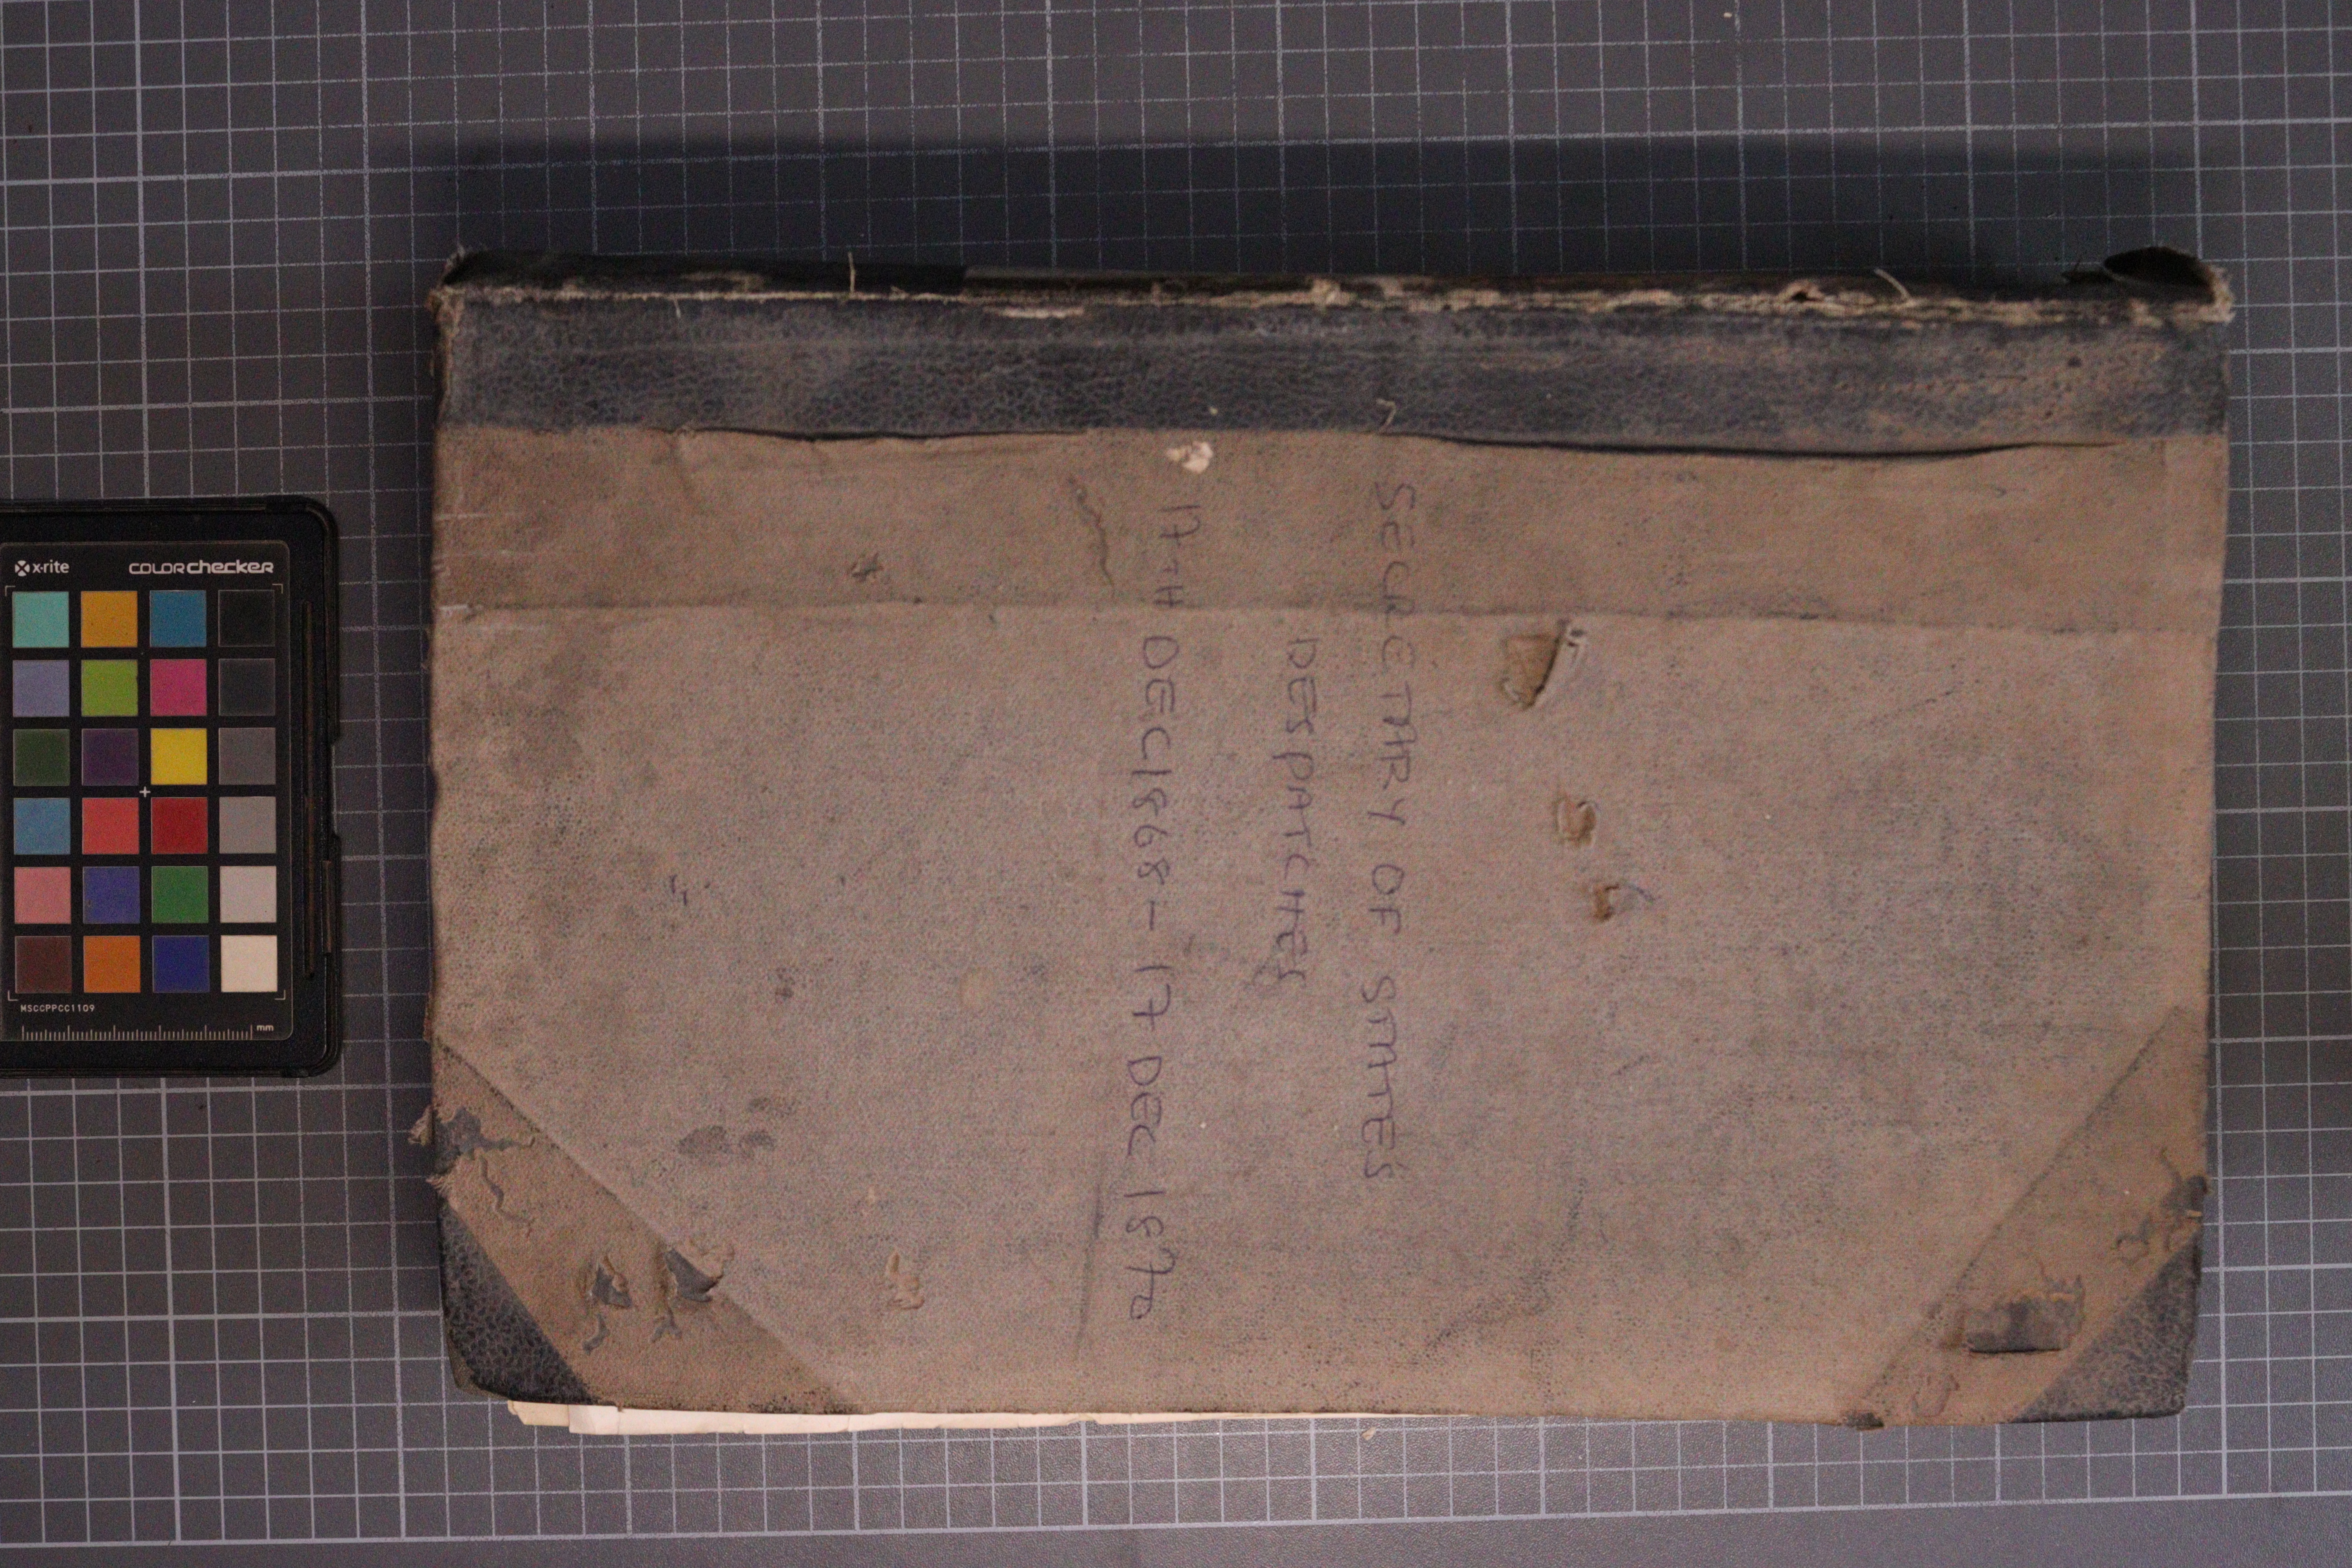 SECRETARY OF STATES
DESPATCHES
17TH DEC 1868 - 17 DEC 1870
x-rite
COLORchecker
MSCCPPCC1109
mm